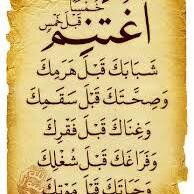 اغْتَنِمْ خَمْسًا قَبْلَ خَمْسٍ
شَبَابَكَ قَبْلَ هَرَمِكَ
وَصِحَّتَكَ قَبْلَ سَقَمِكَ
وَغِنَاكَ قَبْلَ فَقْرِكَ
وَفَرَاغَكَ قَبْلَ شُغْلِكَ
وَحَيَاتَكَ قَبْلَ مَوْتِكَ